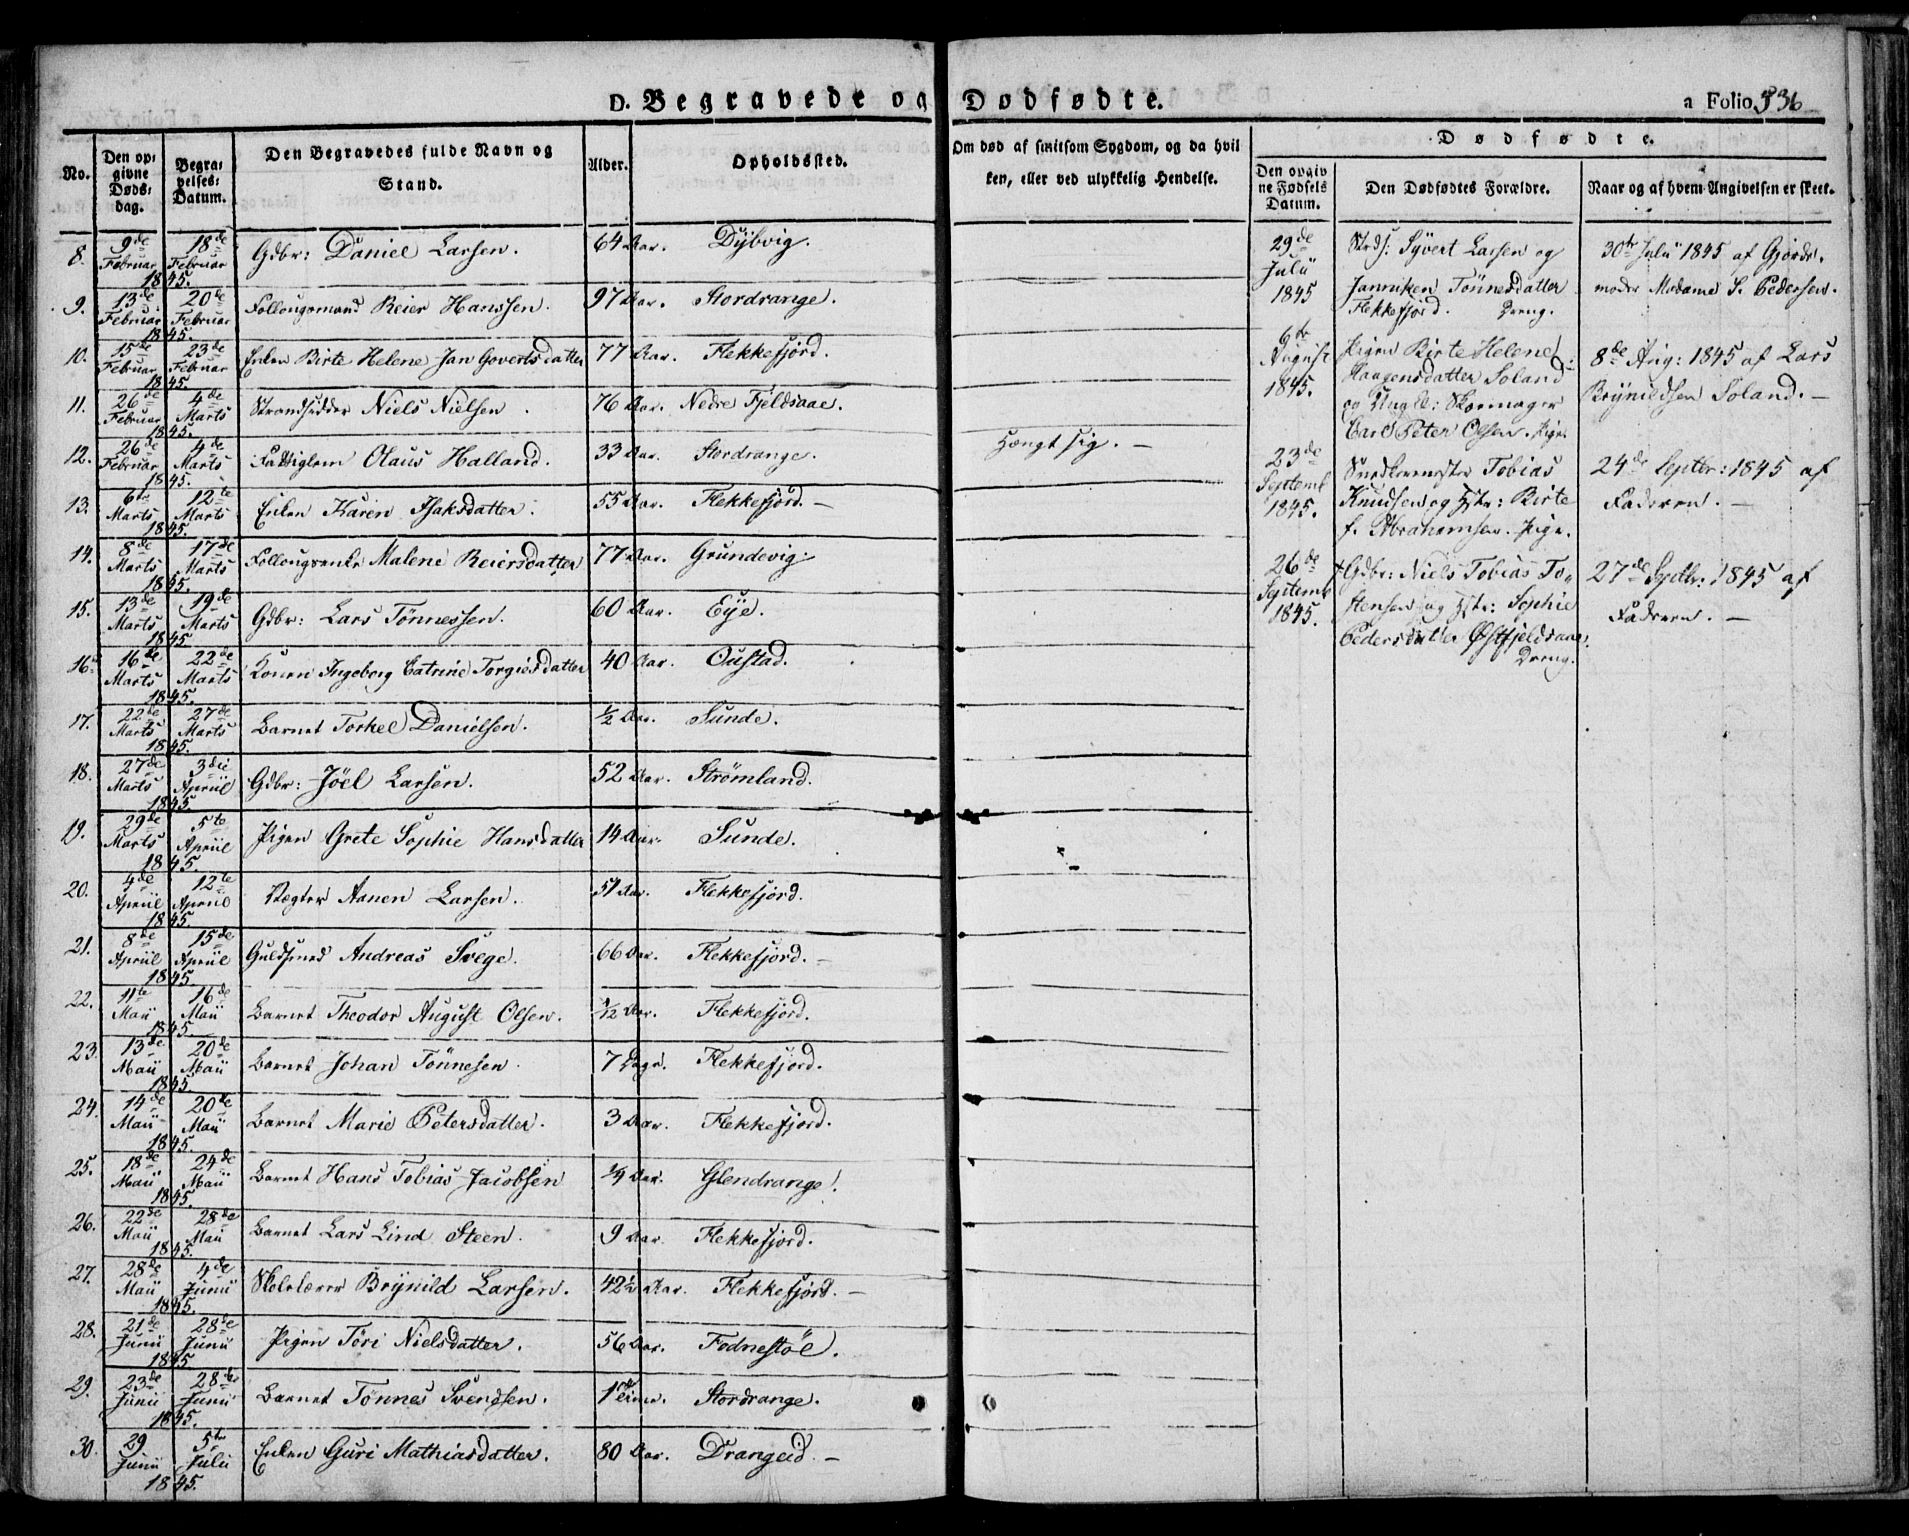 D. Begravede og Dødfødte.
a Folio 336
No. Den opgivne Døds: dag. Begravelses: Datum. Den Begravedes fulde Navn og Stand. Alder. Opholdssted. Om død af smitsom Sygdom, og da hvilken, eller ved ulykkelig Hendelse.
8. 9de Februar 18de Februar 1845. Gdbr: Daniel Larsen. 64 Aar. Dÿbvig.
9. 13de Februar 20de Februar 1845. Follougsmand Reier Hanssen. 97 Aar. Stordrange.
10. 15de Februar 23de Februar 1845. Enken Birte Helene Jan Govertsdatter 77 Aar. Flekkefjord.
11. 26de Februar 4de Marts 1845. Strandsidder Niels Nielsen. 76 Aar. Nedre Fjeldsaae.
12. 26de Februar 4de Marts 1845. Fattiglem Olaus Halland. 33 Aar. Stordrange. Hængt sig. –
13. 6te Marts 12te Marts 1845. Enken Karen Isaksdatter. 55 Aar. Flekkefjord. –
14. 8de Marts 17de Marts 1845. Follougsenke Malene Reiersdatter 77 Aar. Grundevig.
15. 13de Marts 19de Marts 1845. Gdbr: Lars Tönnessen. 60 Aar. Eÿe.
16. 16de Marts 22de Marts 1845. Konen Ingeborg Catrine Torgiesdatter 40 Aar. Oustad.
17. 22de Marts 27de Marts 1845. Barnet Torkel Danielsen. ½ Aar. Sunde.
18. 27de Marts 3die Apriil 1845. Gdbr: Jöel Larsen. 52 Aar. Strømland.
19. 29de Marts 5te Apriil 1845. Pigen Grete Sophie Hansdatter 14 Aar. Sunde.
20. 4de Apriil 12te Apriil 1845. Vægter Aanen Larsen. 51 Aar. Flekkefjord.
21. 8de Apriil 15de Apriil 1845. Guldsmed Andreas Svege. 66 Aar. Flekkefjord. –
22. 11te Maii 16de Maii 1845. Barnet Theodor August Olsen. Aar. Flekkefjord.
23. 13de Maii 20de Maii 1845. Barnet Johan Tönnesen. 7 Dage. Flekkefjord.
24. 14de Maii 20de Maii 1845. Barnet Marie Petersdatter. 3 Aar. Flekkefjord.
25. 18de Maii 24de Maii 1845. Barnet Hans Tobias Jacobsen Aar. Glendrange.
26. 22de Maii 28de Maii 1845. Barnet Lars Lind Steen. 9 Aar. Flekkefjord.
27. 28de Maii 4de Junii 1845. Skolelærer Brÿnild Larsen. 42½ Aar. Flekkefjord. –
28. 21de Junii 28de Junii 1845. Pigen Töri Nielsdatter. 56 Aar. Fodnestöl.
29. 23de Junii 28de Junii 1845. Barnet Tönnes Svendsen. 1 Stordrange.
30. 29 Junii 5te Julii 1845. Enken Guri Mathiasdatter. 80 Aar. Drangeid. –
Dødfødte.
Den opgivne Fødsels Datum. Den Dødfødtes Forældre. Naar og af hvem Angivelsen er skeet.
29de Julii 1845
Strds: Sÿvert Larsen og
Janniken Tönnesdatter
Flekkefjord. Dreng.
30te Julii 1845 af Gjorde-
moder Madame S. Pedersen.
6te August 1845.
Pigen Birte Helene
Haagensdatter Soland
og Ungk: Skomager
Carl Peter Olsen. Pige.
8de Aug: 1845 af Lars
Brÿnildsen Soland. –
23de Septemb 1845.
Snedkermester Tobias
Knudsen og Hstr: Birte
f. Abrahamsen. Pige.
24de Septbr: 1845 af
Faderen. –
26de Septemb 1845.
Gdbr: Niels Tobias To-
stensen og Hstr: Sophie
Pedersdatter Østfjeldsaae.
Dreng.
27de Septbr: 1845 af
Faderen. –